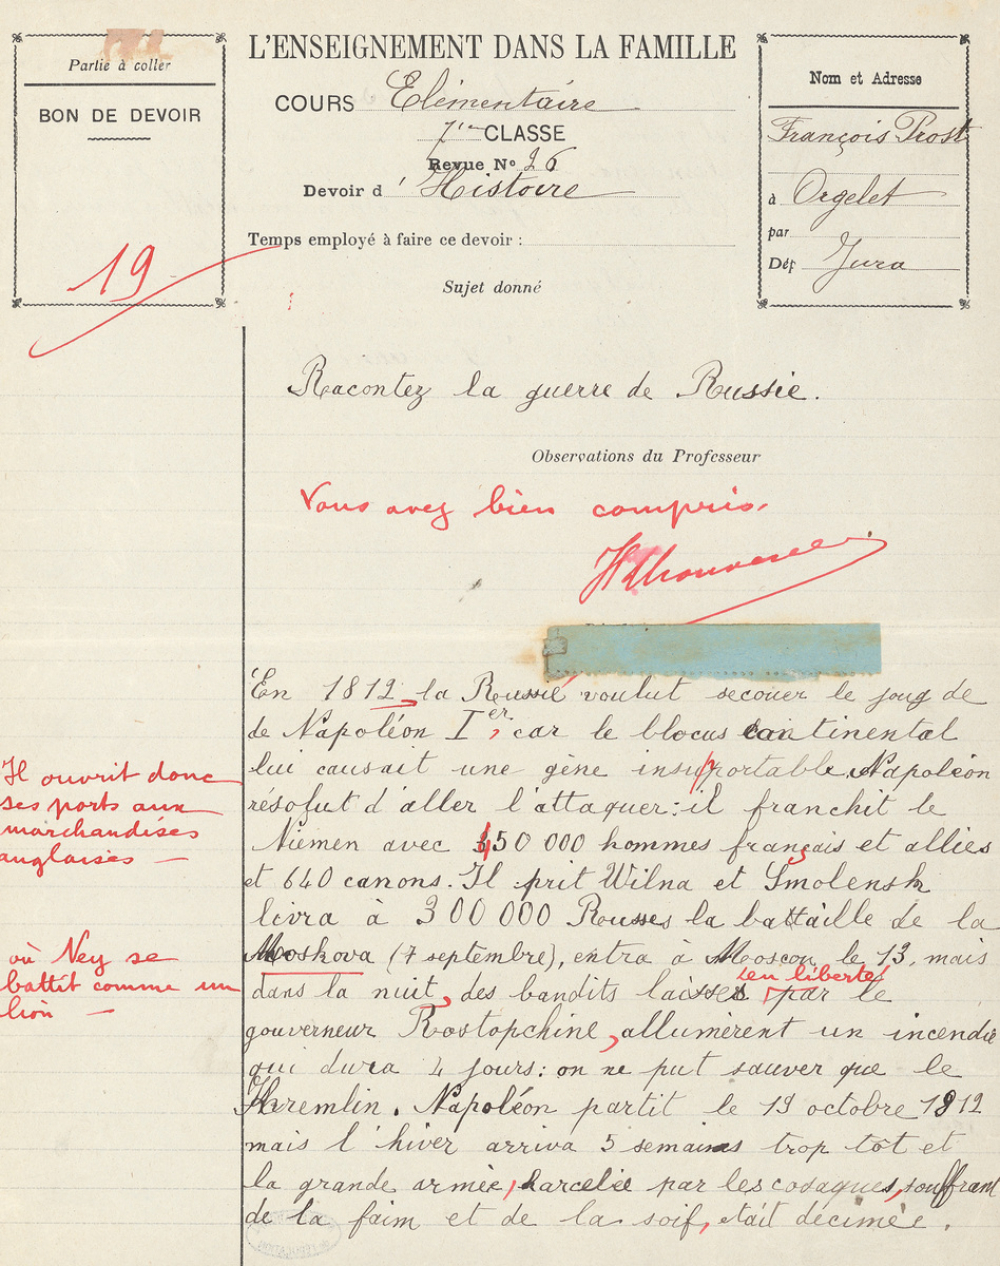 Partie à coller
BON DE DEVOIR
19
L'ENSEIGNEMENT DANS LA FAMILLE
COURS Elémentaire
7ième CLASSE
Revue No 26
Devoir d'Histoire
Temps employé à faire ce devoir :
Sujet donné
Nom et Adresse
François Prost
à Orgelet
par
Dép Jura
Racontez la guerre de Russie.
Observations du Professeur
Vous avez bien compris.
En 1812, la Russie voulut secouer le joug de
de Napoléon Ier, car le blocus continental
lui causait une gêne insupportable. Napoléon
résolut d'aller l'attaquer: il franchit le
Niémen avec 450 000 hommes français et alliés
et 640 canons. Il prit Wilna et Smolensk
livra à 300 000 Russes la battaille de la
Moskova (7 septembre), entra à Moscou le 13, mais
en liberté
dans la nuit, des bandits laissés par le
gouverneur Rostopchine, allumèrent un incendie
qui dura 4 jours: on ne put sauver que le
Kremlin. Napoléon partit le 19 octobre 1812
mais l'hiver arriva 5 semaines trop tôt et
la grande armée, harcelée par les cosaques, souffrant
de la faim et de la soif, était décimée.
Il ouvrit donc
ses ports aux
marchandises
anglaises —
où Ney se
battit comme un
lion —